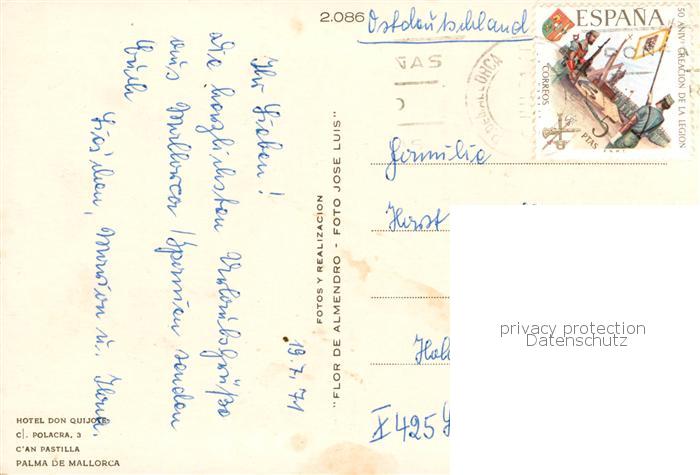 2.086
Ostdeutschland
50 ANIV. CREACION DE LA LEGION
ESPAÑA
CORREOS
5
PTAS
Ihr Lieben!
Die herzlichsten Urlaubsgrüße
aus Mallorca / Spanien senden
Euch
Marion u. Ilona.
19.7.71
FOTOS Y REALIZACION
"FLOR DE ALMENDRO - FOTO JOSE LUIS"
Familie
Horst
X425
privacy protection
Datenschutz
HOTEL DON QUIJOTE
C|. POLACRA, 3
C'AN PASTILLA
PALMA DE MALLORCA